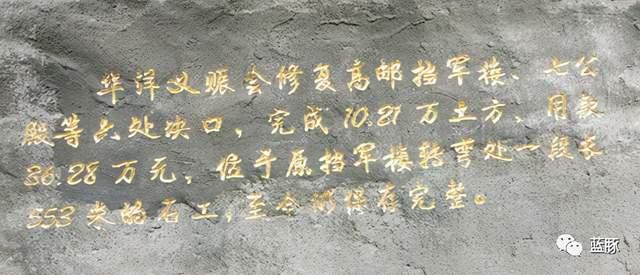 华洋义赈会修复高邮挡军楼、七公
殿等六处决口，完成10.21万土方，用款
36.28万元，位于原挡军楼转弯处一段长
553米的石工，至今仍保存完整。
蓝豚